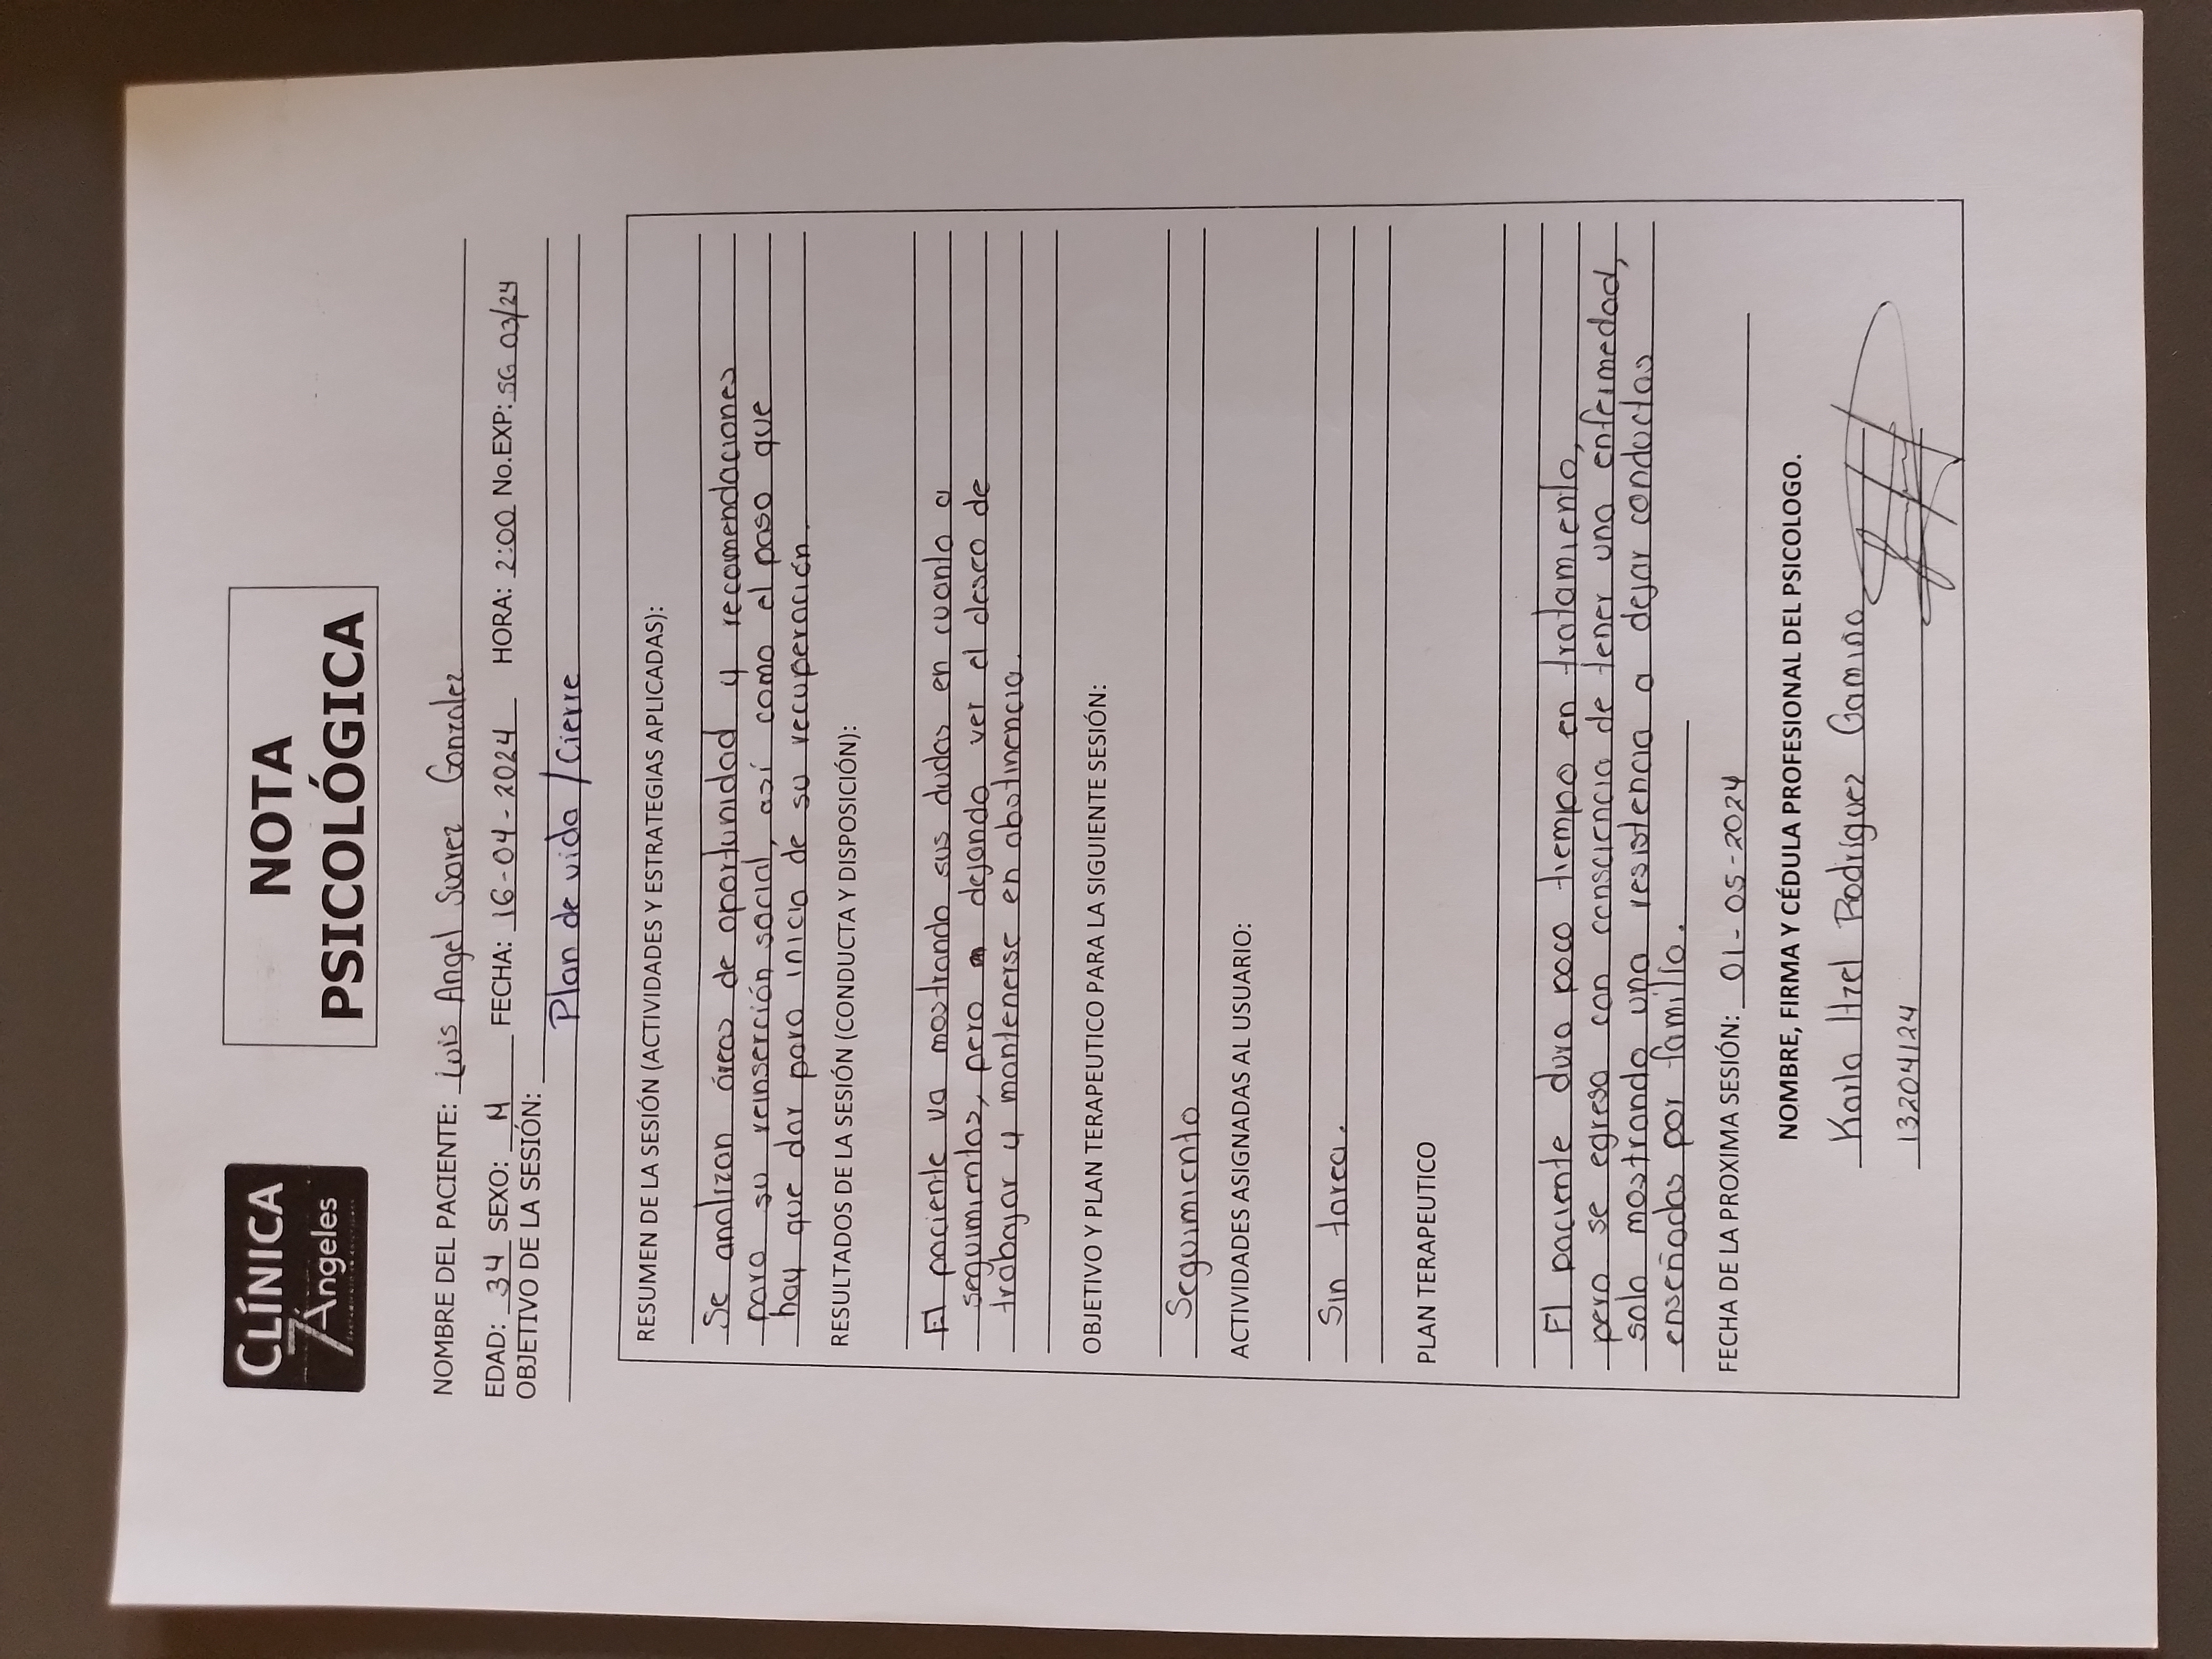 CLÍNICA
7 Ángeles
NOTA
PSICOLÓGICA
NOMBRE DEL PACIENTE: Luis Angel Suarez Gonzalez
EDAD: 34 SEXO: M FECHA: 16-04-2024 HORA: 2:00 No.EXP: SG 03/24
OBJETIVO DE LA SESIÓN:
Plan de vida / Cierre
RESUMEN DE LA SESIÓN (ACTIVIDADES Y ESTRATEGIAS APLICADAS):
Se analizan áreas de oportunidad y recomendaciones
para su reinserción social, así como el paso que
hay que dar para inicio de su recuperación.
RESULTADOS DE LA SESIÓN (CONDUCTA Y DISPOSICIÓN):
El paciente va mostrando sus dudas en cuanto a
seguimientos, pero dejando ver el deseo de
trabajar y mantenerse en abstinencia.
OBJETIVO Y PLAN TERAPEUTICO PARA LA SIGUIENTE SESIÓN:
Seguimiento
ACTIVIDADES ASIGNADAS AL USUARIO:
Sin tarea.
PLAN TERAPEUTICO
El paciente dura poco tiempo en tratamiento,
pero se egresa con consciencia de tener una enfermedad,
solo mostrando una resistencia a dejar conductas
enseñadas por familia.
FECHA DE LA PROXIMA SESIÓN: 01-05-2024
NOMBRE, FIRMA Y CÉDULA PROFESIONAL DEL PSICOLOGO.
Karla Itzel Rodríguez Gamiño
13204124